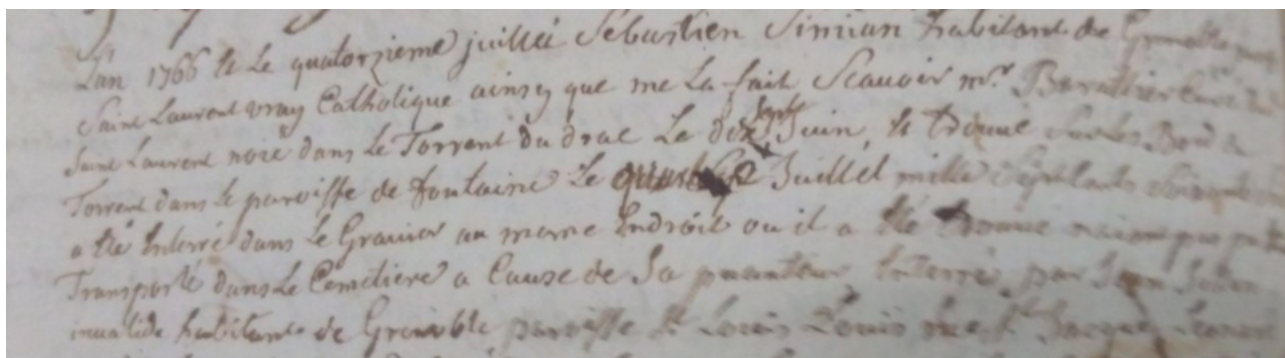 Lan 1766 & Le quatorzieme juillet Sebastien Simian habitant de Grenoble
Saint Laurent vray Catholique ainsy que me La fait Scavoir mr. Baratier Curé de
Saint Laurent noié dans Le Torrent du drac Le dix Sept Juin, & trouvé sur les Bord du
Torrent dans le paroisse de fontaine Le Juillet mille Sept Cents
a été Enterré dans Le Gravier au meme Endroit ou il a été trouvé
Transporté dans Le Cemetiere a Cause de Sa puanteur Enterré par Jean
invalide habitant de Grenoble paroisse St Louis Louis Jacque